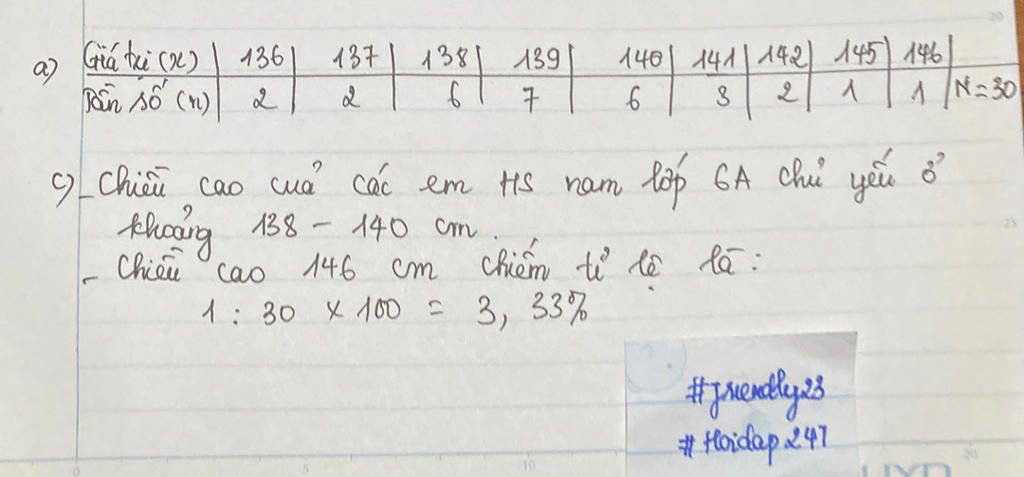 a) Giá trị (x) | 136 | 137 | 138 | 139 | 140 | 141 | 142 | 145 | 146 |
Tần số (n) | 2 | 2 | 6 | 7 | 6 | 3 | 2 | 1 | 1 | N = 30
c) - Chiều cao cuả các em HS nam lớp 6A chủ yếu ở
khoảng 138 - 140 cm.
- Chiều cao 146 cm chiếm tỉ lệ là:
1 : 30 x 100 = 3, 33%
#friendly23
#Hoidap247
0 5 10 20
20
25